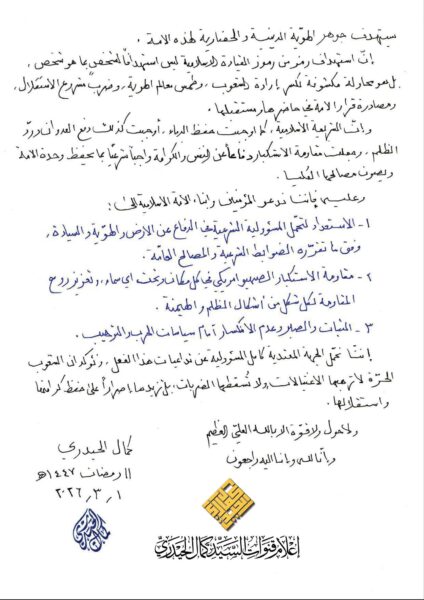 ستهدف جوهر الهوية الدينية والحضارية لهذه الامة.
إنّ استهداف رمز من رموز القيادة الإسلامية ليس استهدافاً لشخص بما هو شخص،
بل هو محاولة مكشوفة لكسر إرادة الشعوب، وطمس معالم الهوية، وضرب مشروع الاستقلال،
ومصادرة قرار الامة في حاضرها ومستقبلها.
وانّ الشريعة الاسلامية، كما اوجبت حفظ الدماء، أوجبت كذلك دفع العدوان وردّ
الظلم، وجعلت مقاومة الاستكبار دفاعاً عن النفس والكرامة واجباً شرعياً بما يحفظ وحدة الامة
ويصون مصالحها العُليا.
وعليه فإننا ندعو المؤمنين وابناء الامة الاسلامية الى:
١- الاستعداد لتحمل المسؤولية الشرعية في الدفاع عن الارض والهوية والسيادة،
وفق ما تقرّره الضوابط الشرعية والمصالح العامّة.
٢- مقاومة الاستكبار الصهيوامريكي في كل مكان وتحت اي سماء، وتعزيز روح
المقاومة لكل شكل من أشكال الظلم والهيمنة.
٣- الثبات والصبر وعدم الانكسار أمام سياسات الحرب والترهيب.
إننا نحمّل الجهة المعتدية كامل المسؤولية عن تداعيات هذا الفعل، ونؤكد ان الشعوب
الحرّة لا ترهبها الاغتيالات، ولا تُسقطها الضربات، بل تزيدها إصراراً على حفظ كرامتها
واستقلالها.
ولا حول ولا قوة الا بالله العليّ العظيم
وإنا لله وإنا اليه راجعون
كمال الحيدري
١١ رمضان ١٤٤٧هـ
٢٠٢٦.٣.١
إعلام قنوات السيد كمال الحيدري